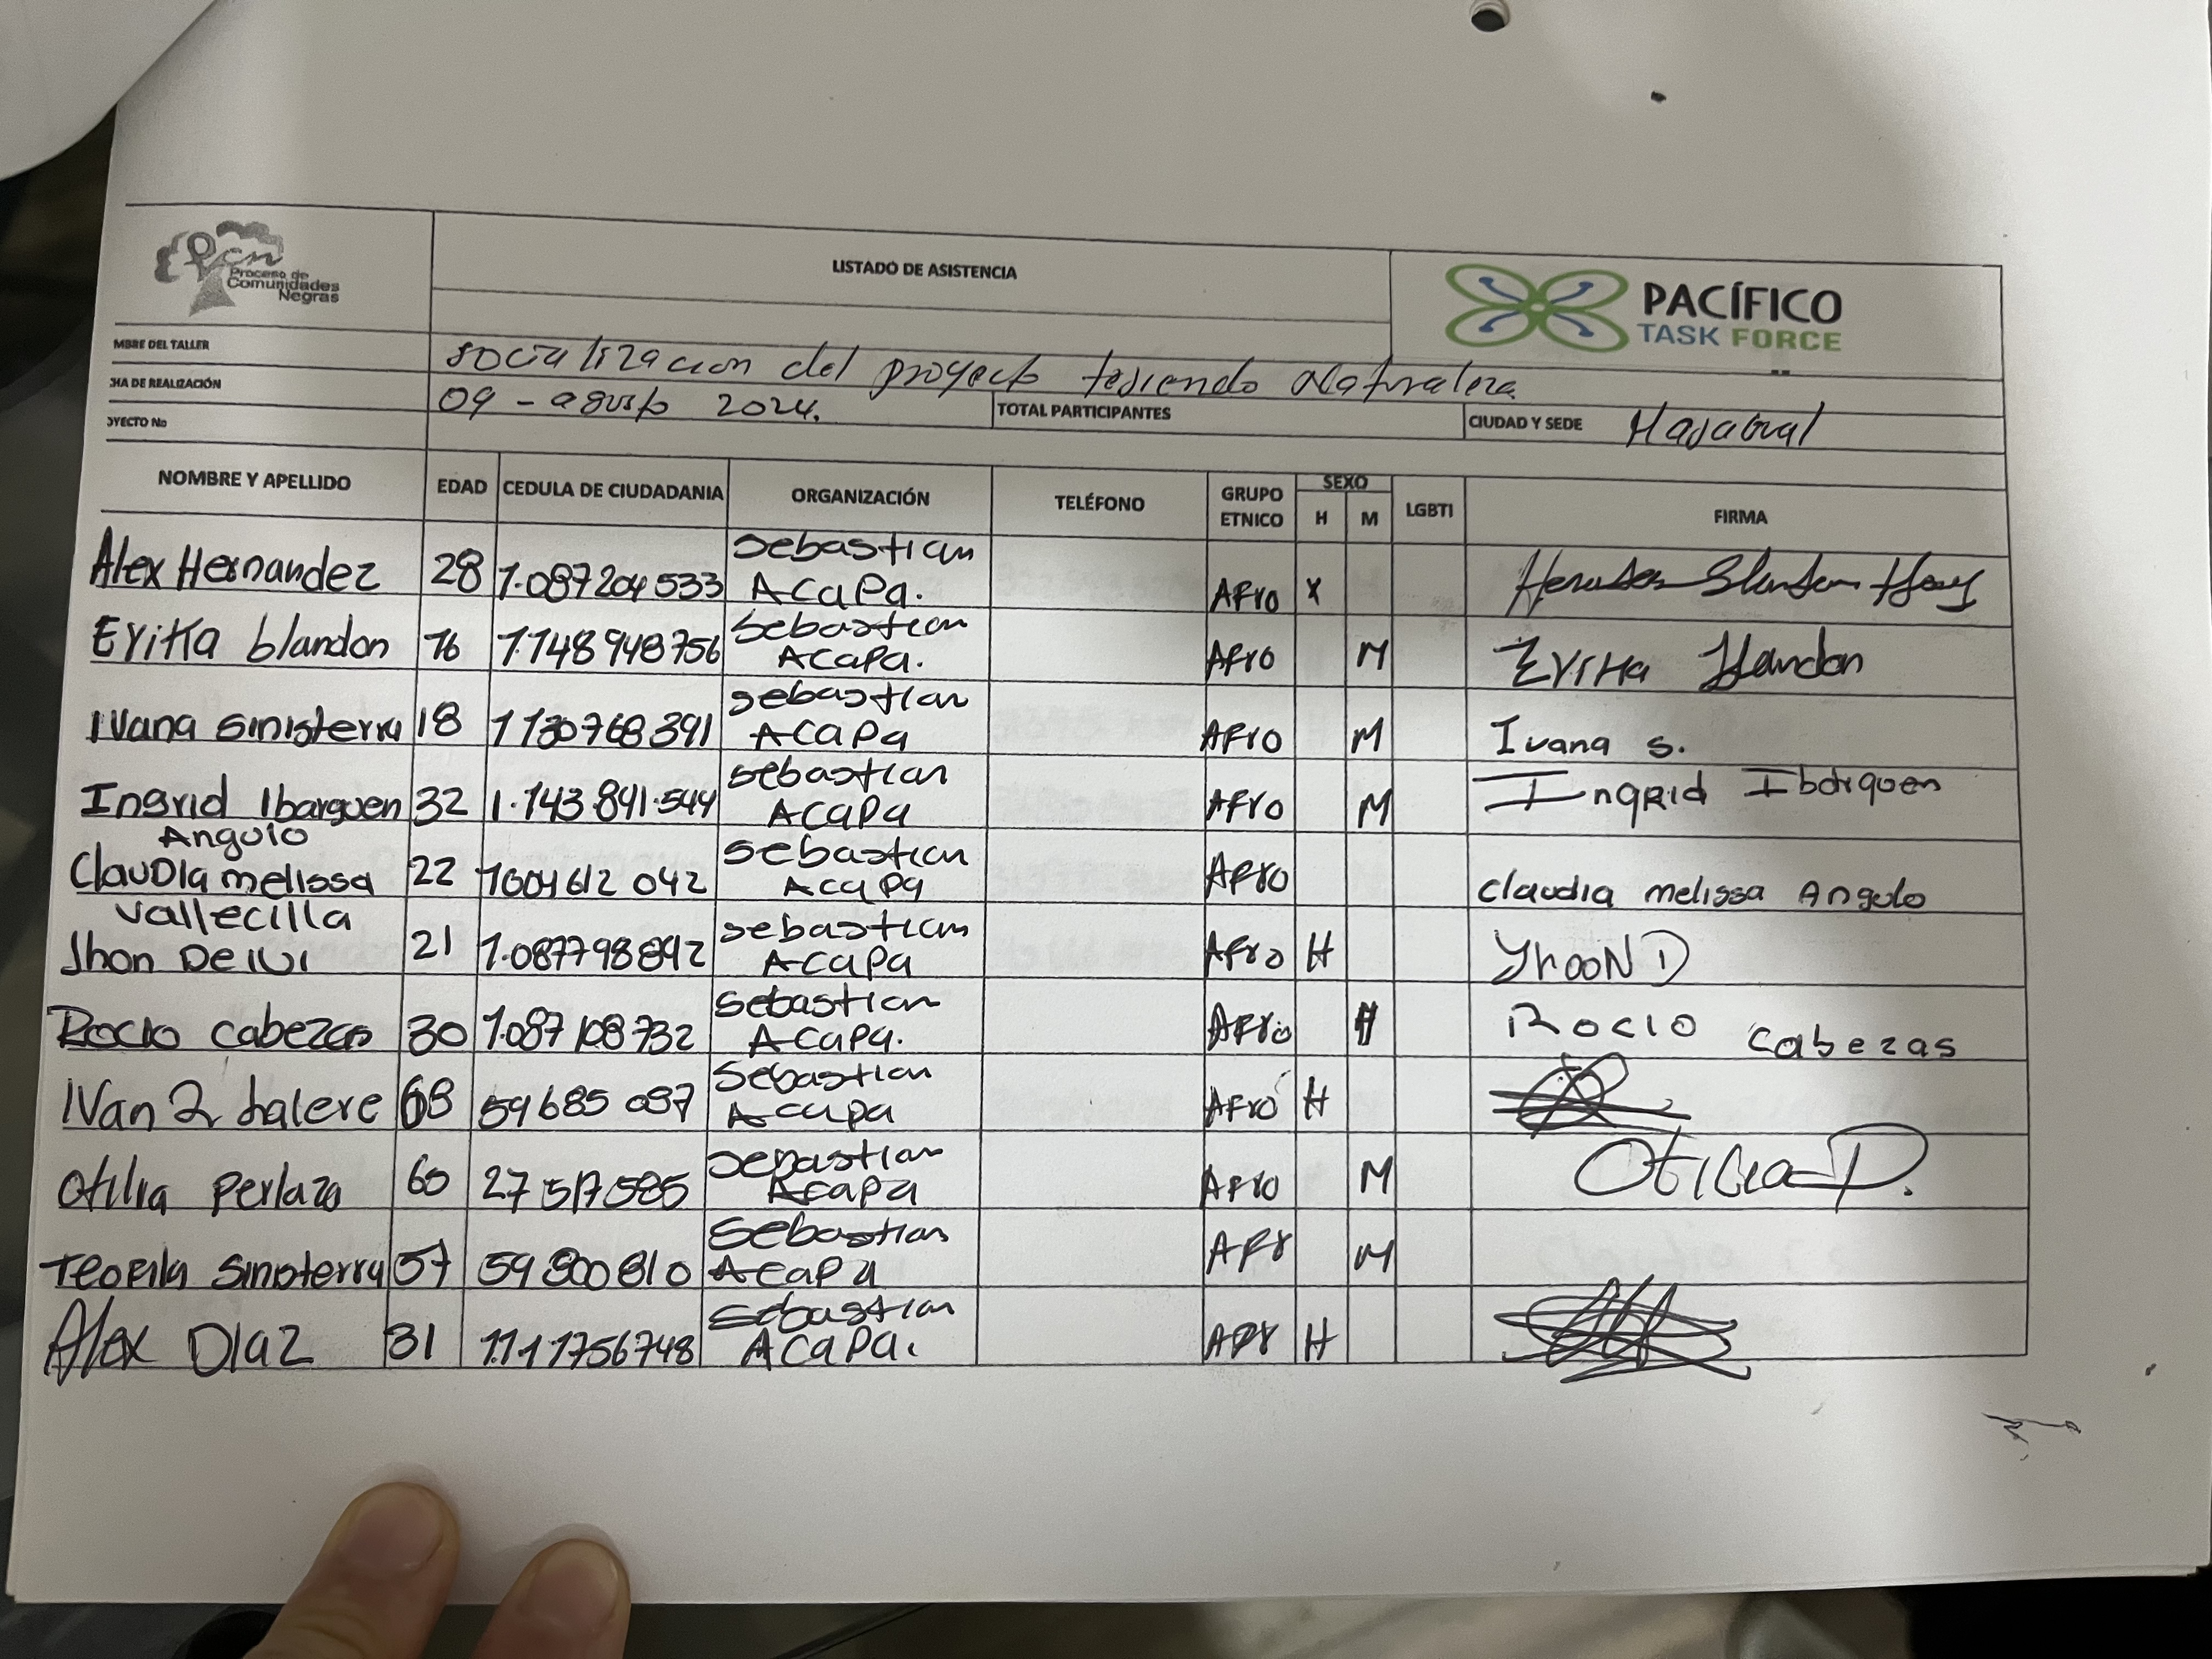 pcn
Proceso de
Comunidades
Negras
LISTADO DE ASISTENCIA
PACÍFICO
TASK FORCE
MBRE DEL TALLER socialización del proyecto tejiendo Naturaleza
CHA DE REALIZACIÓN 09 - agosto 2024. TOTAL PARTICIPANTES CIUDAD Y SEDE
OYECTO No
NOMBRE Y APELLIDO EDAD CEDULA DE CIUDADANIA ORGANIZACIÓN TELÉFONO GRUPO ETNICO SEXO H M LGBTI FIRMA
Alex Hernandez 28 1.087204533 Sebastian ACaPa. AFro X
Eritka blandon 16 1.148948756 Sebastian ACaPa. AFro M Eritka blandon
Ivana sinisterra 18 1130768391 Sebastian ACaPa AFro M Ivana s.
Ingrid Ibarguen 32 1.143.841.544 Sebastian ACaPa AFro M Ingrid Ibarguen
Angulo
Claudia melissa 22 1004612042 Sebastian ACaPa AFro Claudia melissa Angulo
Vallecilla
Jhon Deivi 21 1.087798892 Sebastian ACaPa AFro H YhooN D
Rocio Cabezas 30 1.087108732 Sebastian ACaPa. AFro Rocio Cabezas
IVan 68 59685087 Sebastian Acapa AFro H
Otilia Perlaza 60 27517585 Sebastian Acapa AFro M Otilia P.
Teofila Sinisterra 57 59800810 Sebastian Acapa AFr M
Alex Diaz 31 1.111756748 Sebastian ACaPa. AFr H